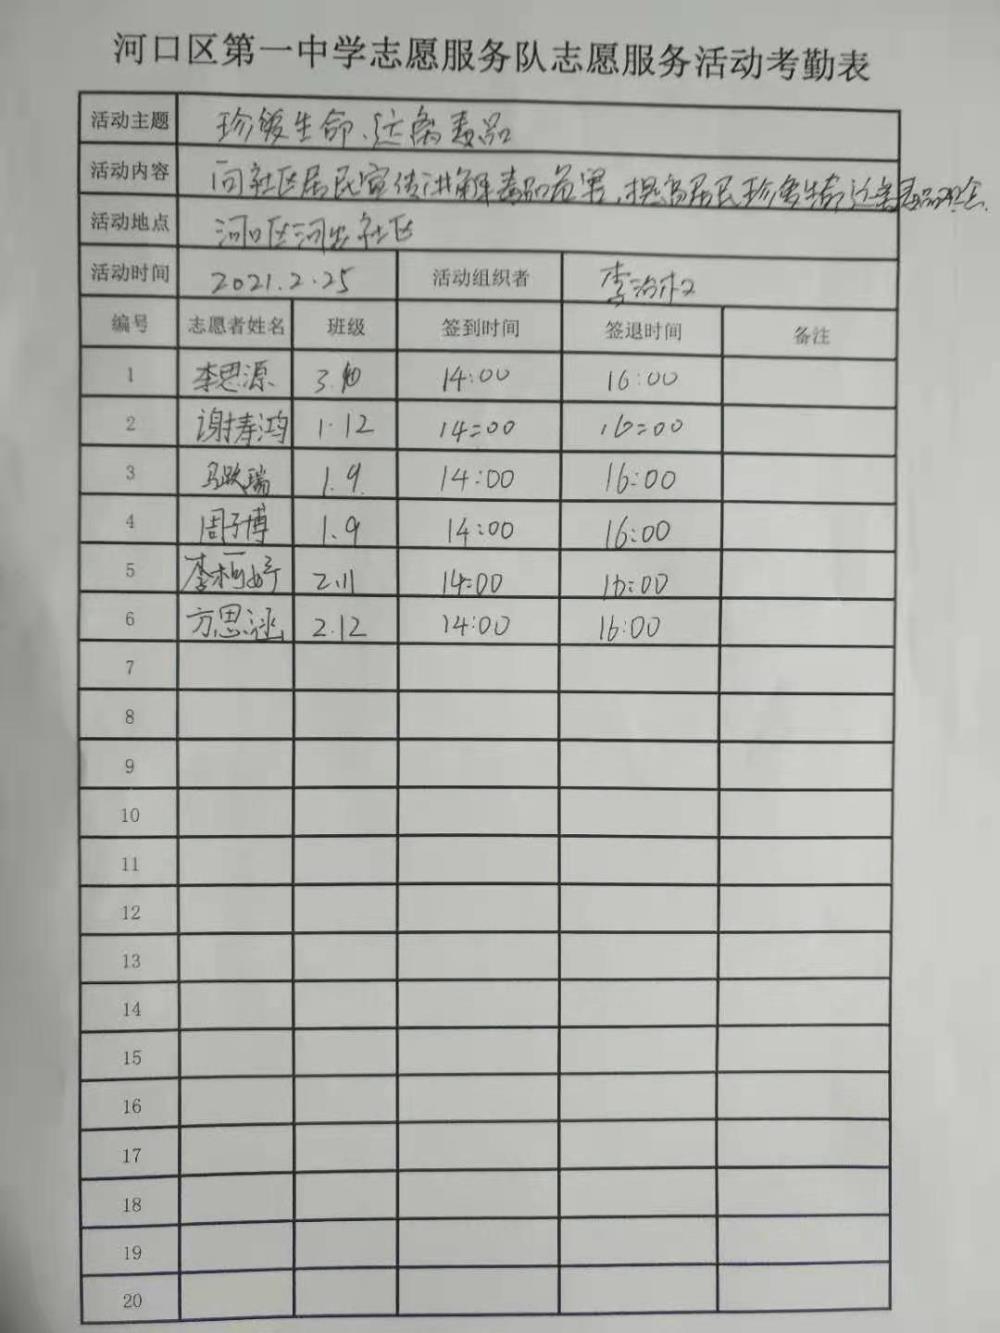 河口区第一中学志愿服务队志愿服务活动考勤表
活动主题 珍爱生命、远离毒品
活动内容 向社区居民宣传讲解毒品危害,提高居民珍爱生命远离毒品观念.
活动地点 河口区河安社区
活动时间 2021.2.25 活动组织者
编号 志愿者姓名 班级 签到时间 签退时间 备注
1 李思源 3. 14:00 16:00
2 谢寿鸿 1.12 14:00 16:00
3 马跃瑞 1.9. 14:00 16:00
4 周于博 1.9 14:00 16:00
5 李柯好 2.11 14:00 16:00
6 方思涵 2.12 14:00 16:00
7
8
9
10
11
12
13
14
15
16
17
18
19
20